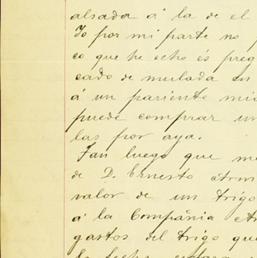 alsada á la de el
Yo por mi parte no p
co que he echo és preg
cado de mulada en
á un pariente mio
puede comprar un
las por aya.
Tan luego que me
de D. Ernesto Arm
valor de un trigo
á la Compãnia
gastos del trigo que
la fecha